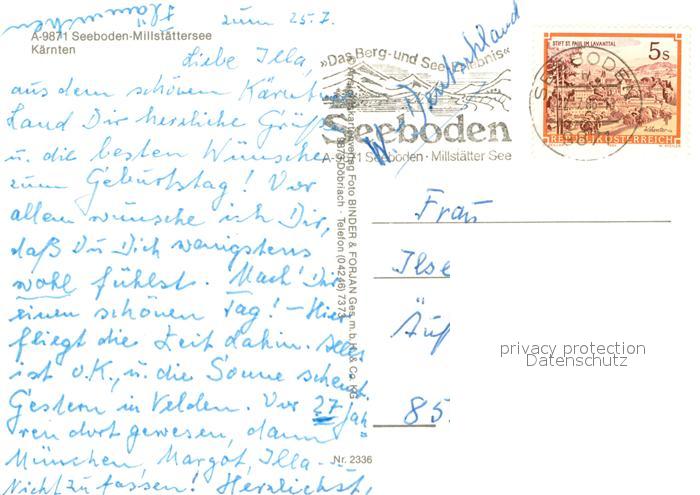 zum 25.7.
A-9871 Seeboden-Millstättersee
Kärnten
Liebe Illa,
aus dem schönen Kärntner
Land Dir herzliche Grüße
u. die besten Wünsche
zum Geburtstag! Vor
allem wünsche ich Dir,
daß Du Dich wenigstens
wohl fühlst. Mach' Dir
einen schönen Tag! – Hier
fliegt die Zeit dahin. Alles
ist o.K., u. die Sonne scheint.
Gestern in Velden. Vor 27 Jah-
ren dort gewesen, dann
München, Margot, Illa –
Nicht zu fassen! Herzlichst,
»Das Berg- und See-Erlebnis«
Seeboden
A-9871 Seeboden · Millstätter See
W. Deutschland
Foto BINDER & FORJAN Ges.m.b.H. & Co. KG
Döbriach · Telefon (04246) 7373
Nr. 2336
STIFT ST. PAUL IM LAVANTTAL
5 S
REPUBLIK ÖSTERREICH
SEEBODEN
Frau
Ilse
85
privacy protection
Datenschutz